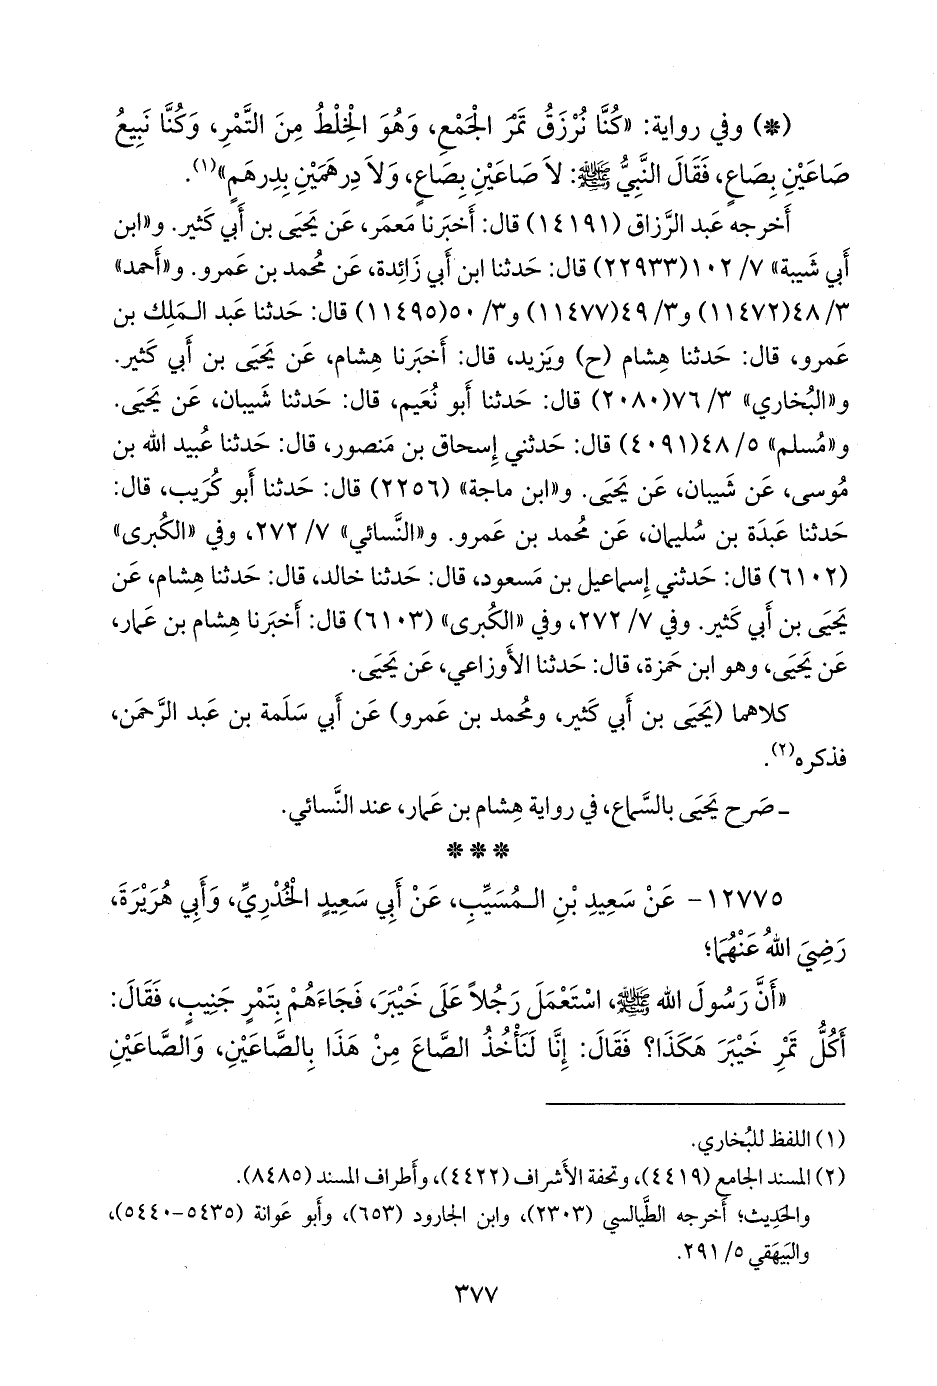 (*) وفي رواية: «كُنَّا نُرْزَقُ تَمْرَ الْجَمْعِ، وَهُوَ الْخِلْطُ مِنَ التَّمْرِ، وَكُنَّا نَبِيعُ
صَاعَيْنِ بِصَاعٍ، فَقَالَ النَّبِيُّ ﷺ: لاَ صَاعَيْنِ بِصَاعٍ، وَلاَ دِرهَمَيْنِ بِدِرهَمٍ»(١).
أَخرجه عَبد الرَّزاق (١٤١٩١) قال: أَخبَرنا مَعمَر، عَن يَحيَى بن أَبي كَثير. و«ابن
أَبي شَيبة» ٧/ ١٠٢(٢٢٩٣٣) قال: حَدثنا ابن أَبي زَائِدة، عَن مُحمد بن عَمرو. و«أَحمد»
٣/ ٤٨(١١٤٧٢) و٣/ ٤٩(١١٤٧٧) و٣/ ٥٠(١١٤٩٥) قال: حَدثنا عَبد الـمَلِك بن
عَمرو، قال: حَدثنا هِشام (ح) ويَزيد، قال: أَخبَرنا هِشام، عَن يَحيَى بن أَبي كَثير.
و«البُخاري» ٣/ ٧٦(٢٠٨٠) قال: حَدثنا أَبو نُعَيم، قال: حَدثنا شَيبان، عَن يَحيَى.
و«مُسلم» ٥/ ٤٨(٤٠٩١) قال: حَدثني إِسحاق بن مَنصور، قال: حَدثنا عُبيد الله بن
مُوسى، عَن شَيبان، عَن يَحيَى. و«ابن ماجة» (٢٢٥٦) قال: حَدثنا أَبو كُرَيب، قال:
حَدثنا عَبدَة بن سُليمان، عَن مُحمد بن عَمرو. و«النَّسائي» ٧/ ٢٧٢، وفي «الكُبرى»
(٦١٠٢) قال: حَدثني إِسماعيل بن مَسعود، قال: حَدثنا خالد، قال: حَدثنا هِشام، عَن
يَحيَى بن أَبي كَثير. وفي ٧/ ٢٧٢، وفي «الكُبرى» (٦١٠٣) قال: أَخبَرنا هِشام بن عَمار،
عَن يَحيَى، وهو ابن حَمزة، قال: حَدثنا الأَوزاعي، عَن يَحيَى.
كلاهما (يَحيَى بن أَبي كَثير، ومُحمد بن عَمرو) عَن أَبي سَلَمة بن عَبد الرَّحمَن،
فذكره(٢).
ـ صَرح يَحيَى بالسَّماع، في رواية هِشام بن عَمار، عند النَّسائي.
* * *
١٢٧٧٥- عَنْ سَعِيدِ بْنِ الـمُسَيِّبِ، عَنْ أَبِي سَعِيدٍ الْخُدْرِيِّ، وَأَبِي هُرَيْرَةَ،
رَضِيَ اللهُ عَنْهُمَا؛
«أَنَّ رَسُولَ الله ﷺ، اسْتَعْمَلَ رَجُلاً عَلَى خَيْبَرَ، فَجَاءَهُمْ بِتَمْرٍ جَنِيبٍ، فَقَالَ:
أَكُلُّ تَمْرِ خَيْبَرَ هَكَذَا؟ فَقَالَ: إِنَّا لَنَأْخُذُ الصَّاعَ مِنْ هَذَا بِالصَّاعَيْنِ، وَالصَّاعَيْنِ
(١) اللفظ للبُخاري.
(٢) المسند الجامع (٤٤١٩)، وتحفة الأَشراف (٤٤٢٢)، وأَطراف المسند (٨٤٨٥).
والحَدِيث؛ أَخرجه الطَّيالسي (٢٣٠٣)، وابن الجارود (٦٥٣)، وأَبو عَوانة (٥٤٣٥-٥٤٤٠)،
والبَيهَقي ٥/ ٢٩١.
٣٧٧